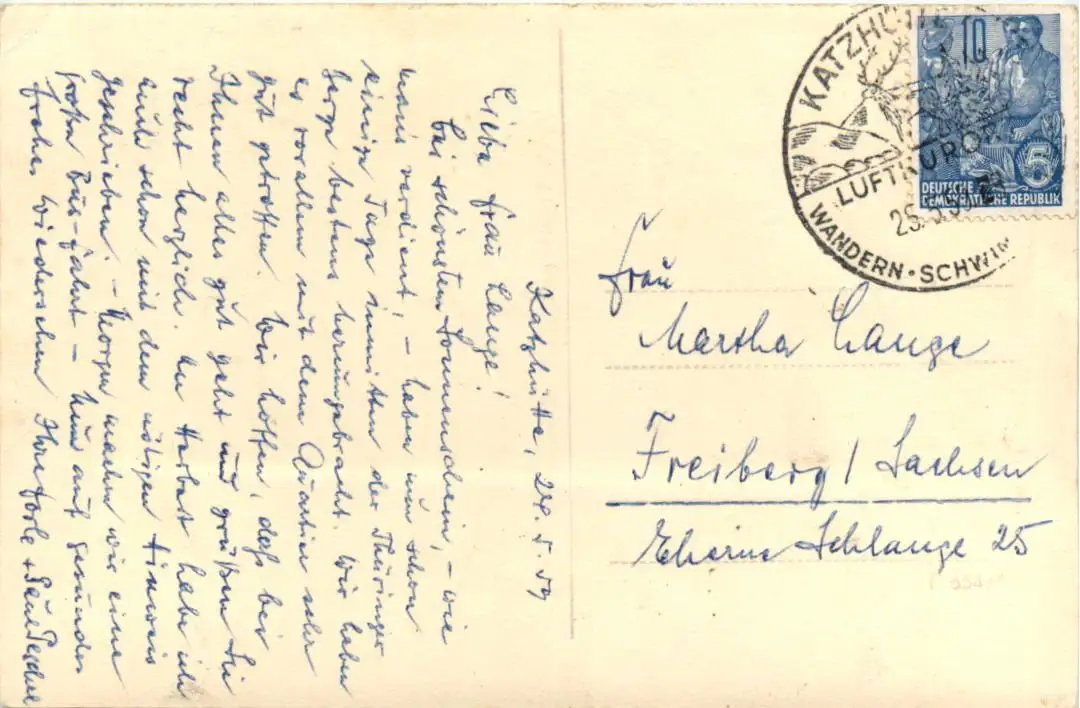 Katzhütte, 24.5.59
Liebe Frau Lange!
Bei schönstem Sonnenschein, – wie
verdient, – haben nun schon
einige Tage inmitten der Thüringer
Berge bestens herumgebracht. Wir haben
es vorallem mit dem Quartier sehr
gut getroffen. Wir hoffen, daß bei
Ihnen alles gut geht und grüßen Sie
recht herzlich. An Herbert habe ich
auch schon mit dem nötigen Hinweis
geschrieben. – Morgen machen wir eine
große Bus-fahrt – Nun auf gesundes
frohes Wiedersehen Ihre + Paul
KATZHÜTTE
LUFTKURO
25.5.59
WANDERN · SCHWIM
10
5
DEUTSCHE
DEMOKRATISCHE REPUBLIK
Frau
Martha Lange
Freiberg / Sachsen
Eherne Schlange 25